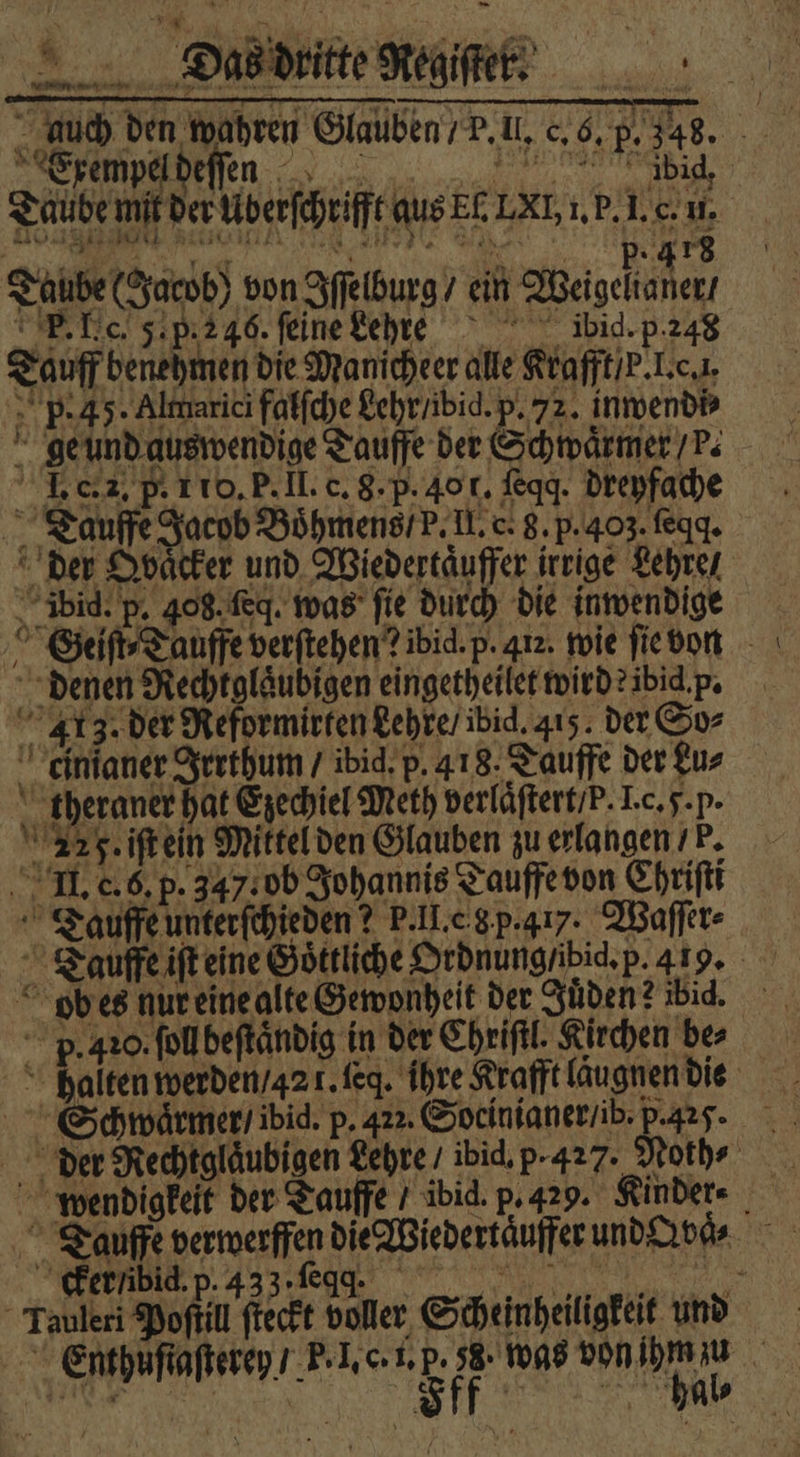 Das dritte Regiſter.
auch den wahren Glauben / P. II. c. 6. p. 348.
Exempel deſſen ibid.
Taube mit der Uberſchrifft aus Eſ. LXI, 1. P. I. c. 11.
p. 418
Taube (Jacob) von Iſſelburg / ein Weigelianer/
P. I. c. 5. p. 246. ſeine Lehre ibid. p. 248
Tauff benehmen die Manicheer alle Krafft/P. I. c. 1.
p. 45. Almarici falſche Lehr/ibid. p. 72. inwendi⸗
ge und auswendige Tauffe der Schwaͤrmer / P.
I. c. 2. p. 110. P. II. c. 8. p. 401. ſeqq. dreyfache
Tauffe Jacob Boͤhmens/P. II. c. 8. p. 403. ſeqq.
der Qvaͤcker und Wiedertaͤuffer irrige Lehre/
ibid. p. 408. ſeq. was ſie durch die inwendige
Geiſt⸗Tauffe verſtehen? ibid. p. 412. wie ſie von
denen Rechtglaͤubigen eingetheilet wird? ibid. p.
413. der Reformirten Lehre/ ibid. 415. der So⸗
cinianer Irrthum / ibid. p. 418. Tauffe der Lu⸗
theraner hat Ezechiel Meth verlaͤſtert/P. I. c. 5. p.
225. iſt ein Mittel den Glauben zu erlangen / P.
II. c. 6. p. 347. ob Johannis Tauffe von Chriſti
Tauffe unterſchieden? P. II. c 8. p. 417. Waſſer⸗
Tauffe iſt eine Goͤttliche Ordnung/ibid. p. 419.
ob es nur eine alte Gewonheit der Juͤden? ibid.
p. 420. ſoll beſtaͤndig in der Chriſtl. Kirchen be⸗
halten werden/421. ſeq. ihre Krafft laͤugnen die
Schwaͤrmer/ ibid. p. 422. Socinianer/ib. p. 425.
der Rechtglaͤubigen Lehre / ibid. p. 427. Noth⸗
wendigkeit der Tauffe / ibid. p. 429. Kinder⸗
Tauffe verwerffen die Wiedertaͤuffer und Qvaͤ⸗
cker/ibid. p. 433. ſeqq.
Tauleri Poſtill ſteckt voller Scheinheiligkeit und
Enthuſiaſterey / P. I. c. 1. p. 58. was von ihm zu
Fff hal⸗